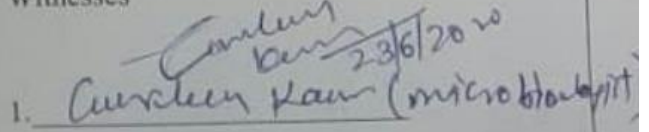 Witnesses
Kaur 23/6/2020
1. Gursleen Kaur (microbiologist)